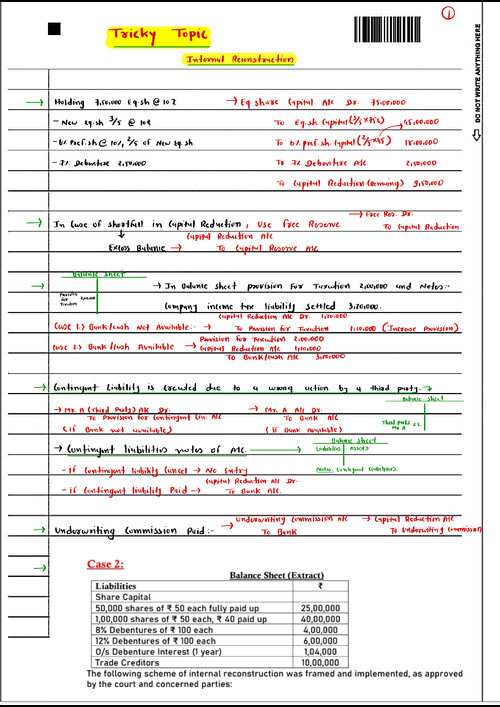 1
Tricky Topic
Internal Reconstruction
DO NOT WRITE ANYTHING HERE
→ Holding 7,50,000 Eq.sh @ 10₹ → Eq. share Capital A/c Dr. 75,00,000
- New Eq.sh 3/5 @ 10₹ To Eq. sh. Capital (3/5×75L) 45,00,000
- 6% Pref.sh @ 10₹, 2/5 of New Eq.sh. To 6% pref.sh. Capital (2/5×45) 18,00,000
- 7% Debenture 2,50,000 To 7% Debenture A/c 2,50,000
To Capital Reduction (Remaining) 9,50,000
→ In Case of shortfall in Capital Reduction, Use Free Reserve → Free Res. Dr.
To Capital Reduction
Excess Balance → Capital Reduction A/c
To Capital Reserve A/c
Balance sheet
Provision for Taxation
→ In Balance sheet provision For Taxation 2,00,000 and Notes:-
Company income tax liability settled 3,20,000.
(Case 1.) Bank/cash Not Available:- → Capital Reduction A/c Dr. 1,20,000
To Provision for Taxation 1,20,000 (Increase Provision)
(Case 2.) Bank/cash Available → Provision for Taxation 2,00,000
Capital Reduction A/c 1,20,000
To Bank/cash A/c 3,20,000
→ Contingent Liability is created due to a wrong action by a third party. →
→ Mr. A (Third Party) A/c Dr. → Mr. A A/c Dr.
To Provision for Contingent Lia. A/c To Bank A/c
(if Bank not available) (if Bank Available)
Balance sheet
Third Party
Mr. A
→ Contingent liabilities notes of A/c. →
Balance sheet
Liabilities Assets
Notes: Contingent Liabilities
- if Contingent liability Cancel → No Entry
- if Contingent liability Paid → Capital Reduction A/c Dr.
To Bank A/c.
→ Underwriting Commission Paid:- → Underwriting Commission A/c → Capital Reduction A/c
To Bank To Underwriting Commission
Case 2:
Balance Sheet (Extract)
Liabilities ₹
Share Capital
50,000 shares of ₹ 50 each fully paid up 25,00,000
1,00,000 shares of ₹ 50 each, ₹ 40 paid up 40,00,000
8% Debentures of ₹ 100 each 4,00,000
12% Debentures of ₹ 100 each 6,00,000
O/s Debenture Interest (1 year) 1,04,000
Trade Creditors 10,00,000
The following scheme of internal reconstruction was framed and implemented, as approved
by the court and concerned parties: